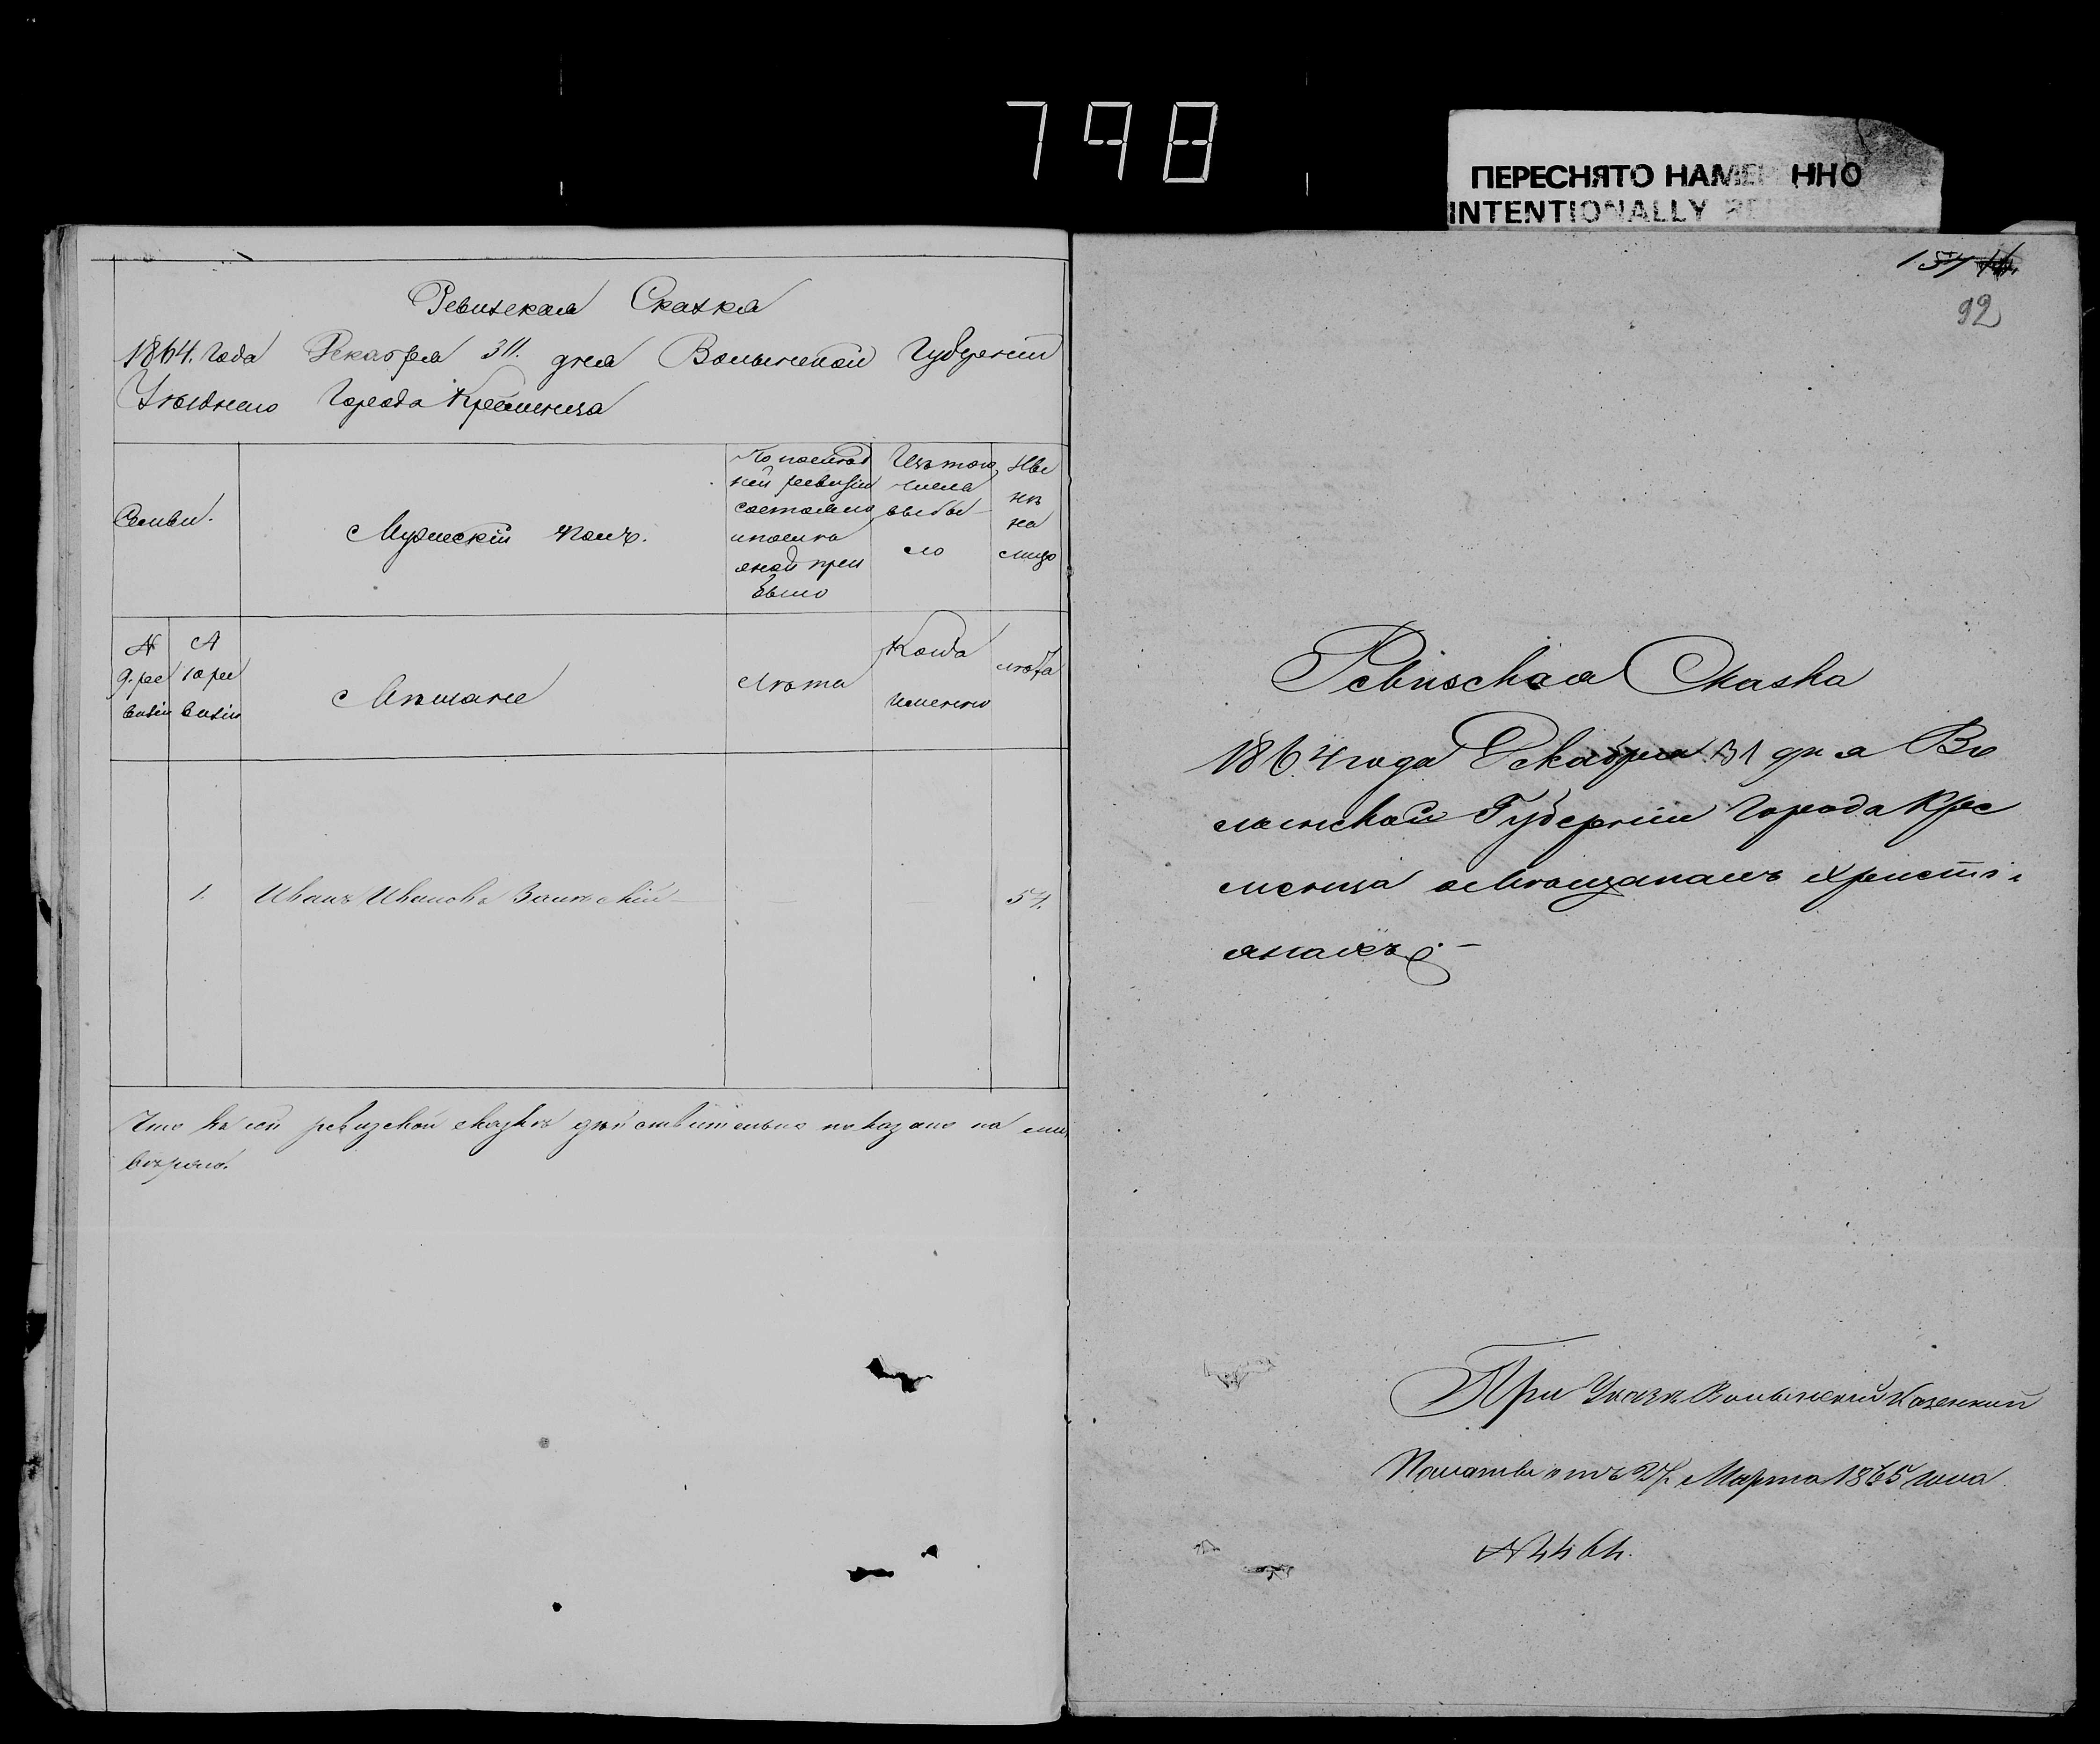 798
ПЕРЕСНЯТО НАМЕР ННО
INTENTIONALLY RE
Ревизская Сказка
1864. Года Декабря 31. дня Волынской Губерніи
Уѣзднаго Города Кременца
Семьи.
Мужескій полъ.
По послѣд
ней ревизіи
состояло
и послѣ
оной при
было
Изъ того
числа
выбы
ло
Ны
нѣ
на
лицо
№
9. ре
визіи
№
10 ре
визіи
Мѣщане
Лѣта
Когда
именно
лѣта
1. Иванъ Ивановъ 57.
Что въ сей ревизской сказкѣ дѣйствительно показано на
вѣрно.
157
92
Ревизская Сказка
1864 года Декабря 31 дня Во
лынской Губерніи Города Кре
менца о Мѣщанахъ Христі
янахъ.
При Указѣ Волынской Казенной
Палаты отъ 27. Марта 1865 года
№ 4464.